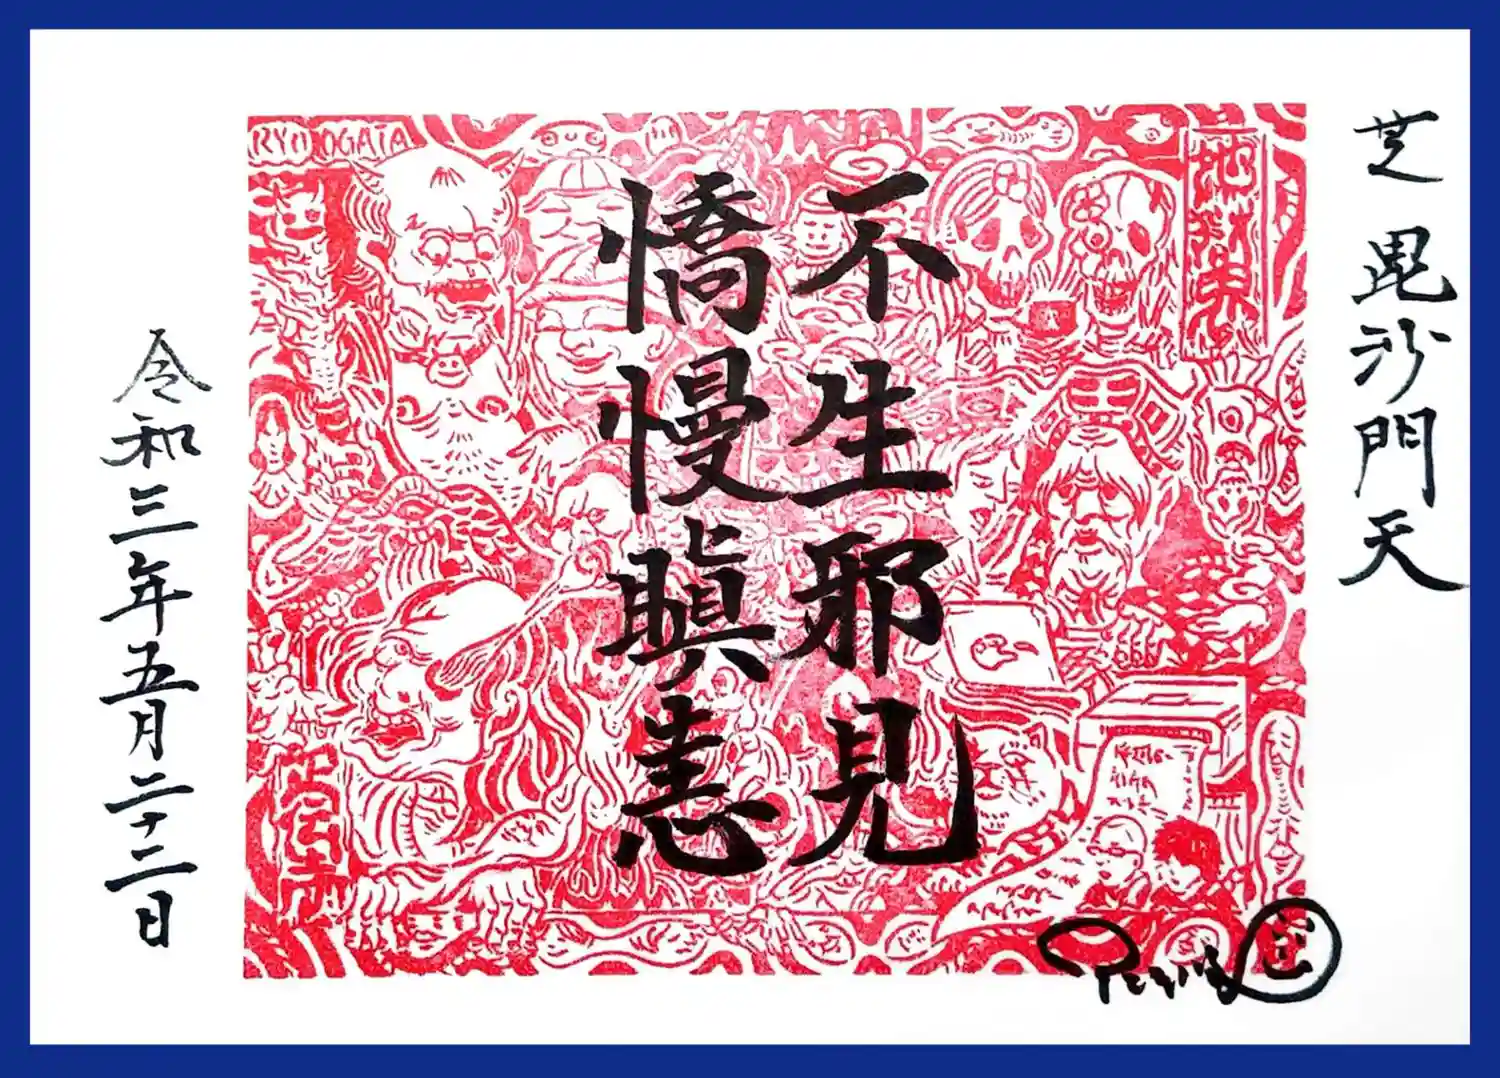 芝毘沙門天
不生邪見
憍慢瞋恚
令和三年五月二十二日
RYO OGATA
666